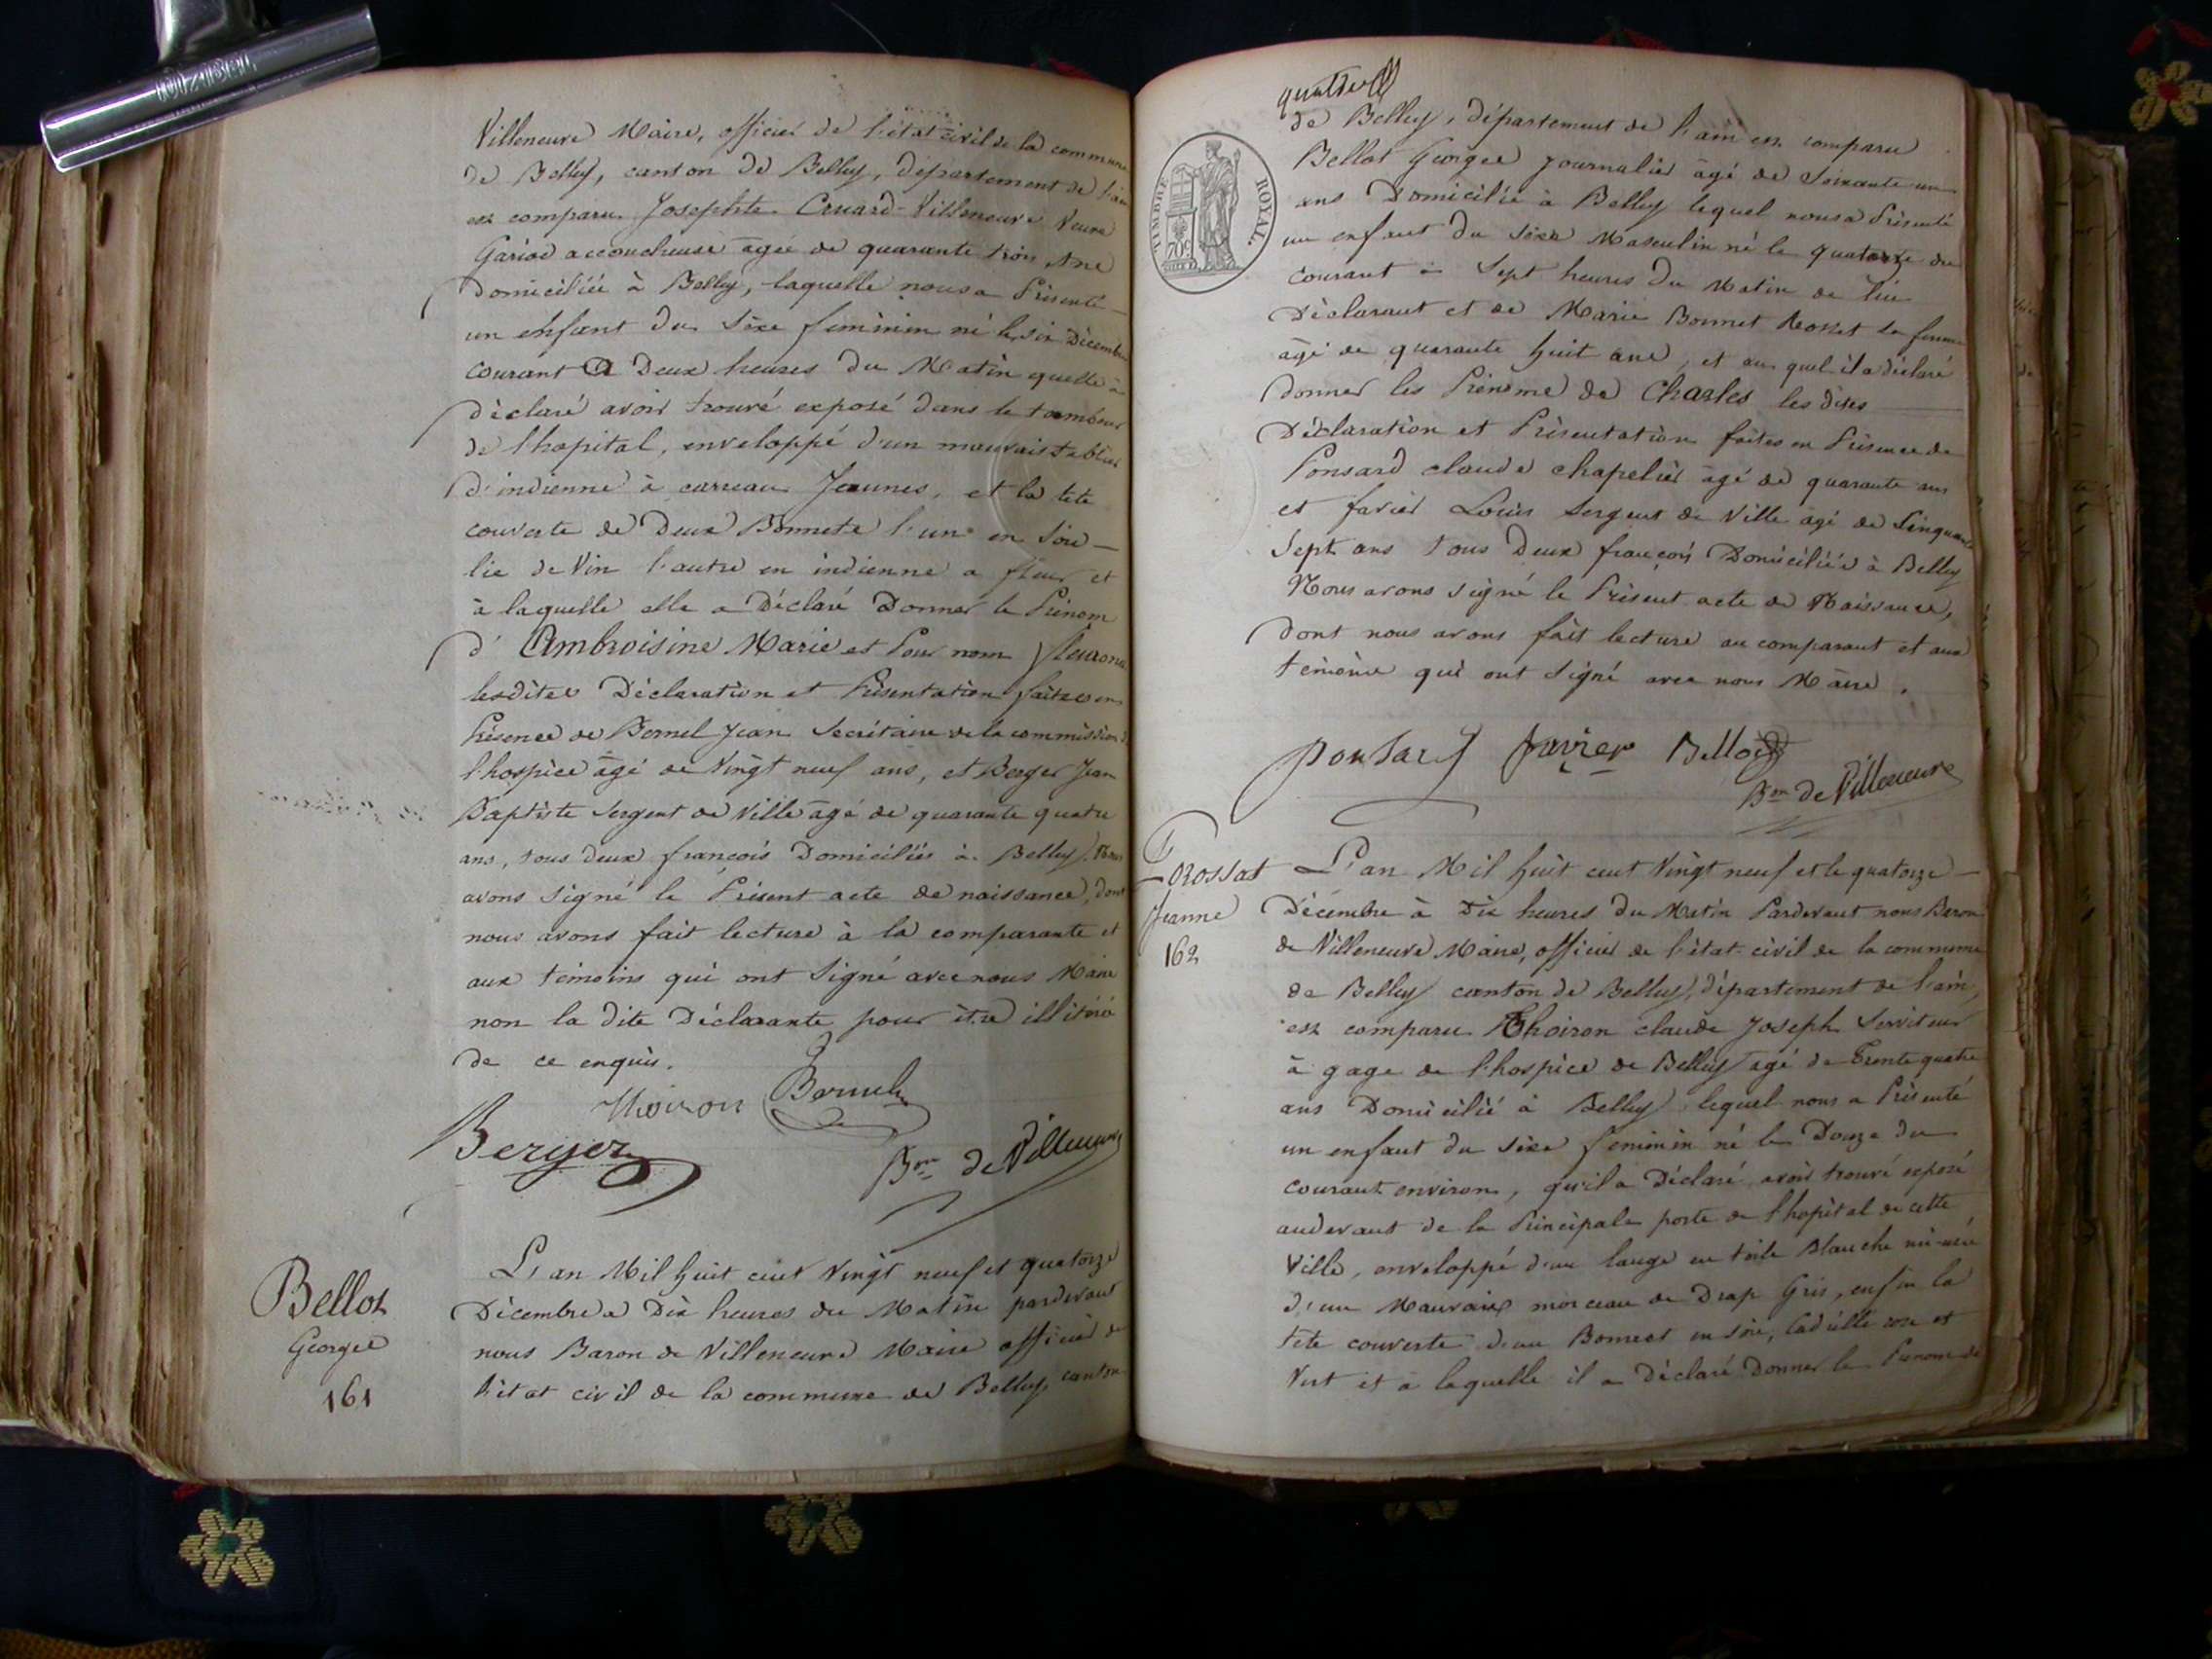 Villeneuve Maire, officier de l'état civil de la commune
de Belley, canton de Belley, département de l'ain
est comparu Josephte Cruard-Villeneuve Veuve
Gariod accoucheuse agée de quarante trois Ans
Domiciliée à Belley, laquelle nous a Présenté
un enfant du sèxe feminin né le six Décembre
courant a Deux heures du Matin quelle a
déclaré avoir trouvé exposé dans le tambour
de l'hopital, enveloppé d'un mauvais tablier
d'indienne à carreau Jaunes, et la tete
couverte de Deux Bonnets l'un en soie
lie de Vin l'autre en indienne a fleur et
à laquelle elle a Déclaré Donner le Prénom
d'Ambroisine Marie et Pour nom
lesdites Déclaration et Présentation faites en
Présence de Bernel Jean Secrétaire de la commission de
l'hospice âgé de Vingt neuf ans, et Berger Jean
Baptiste Sergent de Ville âgé de quarante quatre
ans, tous deux françois Domiciliés à Belley. Nous
avons Signé le Présent acte de naissance, dont
nous avons fait lecture à la comparante et
aux témoins qui ont Signé avec nous Maire
non la dite Déclarante pour être illitéré
de ce enquis.
Thoiron Bernel
Berger
Bon de Villeneuve
Bellot
George
161
L'an Mil huit cent Vingt neuf et quatorze
Décembre a Dix heures du Matin pardevant
nous Baron de Villeneuve Maire officier de
l'état civil de la commune de Belley, canton
TIMBRE ROYAL.
70c
de Belley, département de l'ain est comparu
Bellot George Journalier âgé de Soixante un
ans Domicilié à Belley lequel nous a Présenté
un enfant du sèxe Masculin né le quatorze du
courant à Sept heures du Matin de lui
Déclarant et de Marie Bonnet Rosset sa femme
âgé de quarante huit ans, et au quel il a déclaré
Donner les Prénoms de Charles les dites
Déclaration et Présentation faites en Présence de
Ponsard claude chapelier âgé de quarante ans
et favier Louis Sergent de Ville âgé de Sinquante
Sept ans tous Deux françois Domiciliés à Belley
Nous avons signé le Présent acte de Naissance,
dont nous avons fait lecture au comparant et aux
témoins qui ont Signé avec nous Maire.
Ponsard favier Bellot
Bon de Villeneuve
Jeanne
162
L'an Mil huit cent Vingt neuf et le quatorze
Décembre à Dix heures du Matin Pardevant nous Baron
de Villeneuve Maire, officier de l'état-civil de la commune
de Belley canton de Belley, département de l'ain,
est comparu Thoiron claude Joseph Serviteur
à gage de l'hospice de Belley âgé de Trente quatre
ans Domicilié à Belley lequel nous a Présenté
un enfant du sèxe feminin né le Douze du
courant environ, qu'il a Déclaré avoir trouvé exposé
audevant de la Principale porte de l'hopital de cette
Ville, enveloppé d'un lange en toile Blanche mi-usée
d'un Mauvais morceau de Drap Gris, enfin la
tête couverte d'un Bonnet en soie, rose et
Vert et à laquelle il a Déclaré Donner le Prénom de